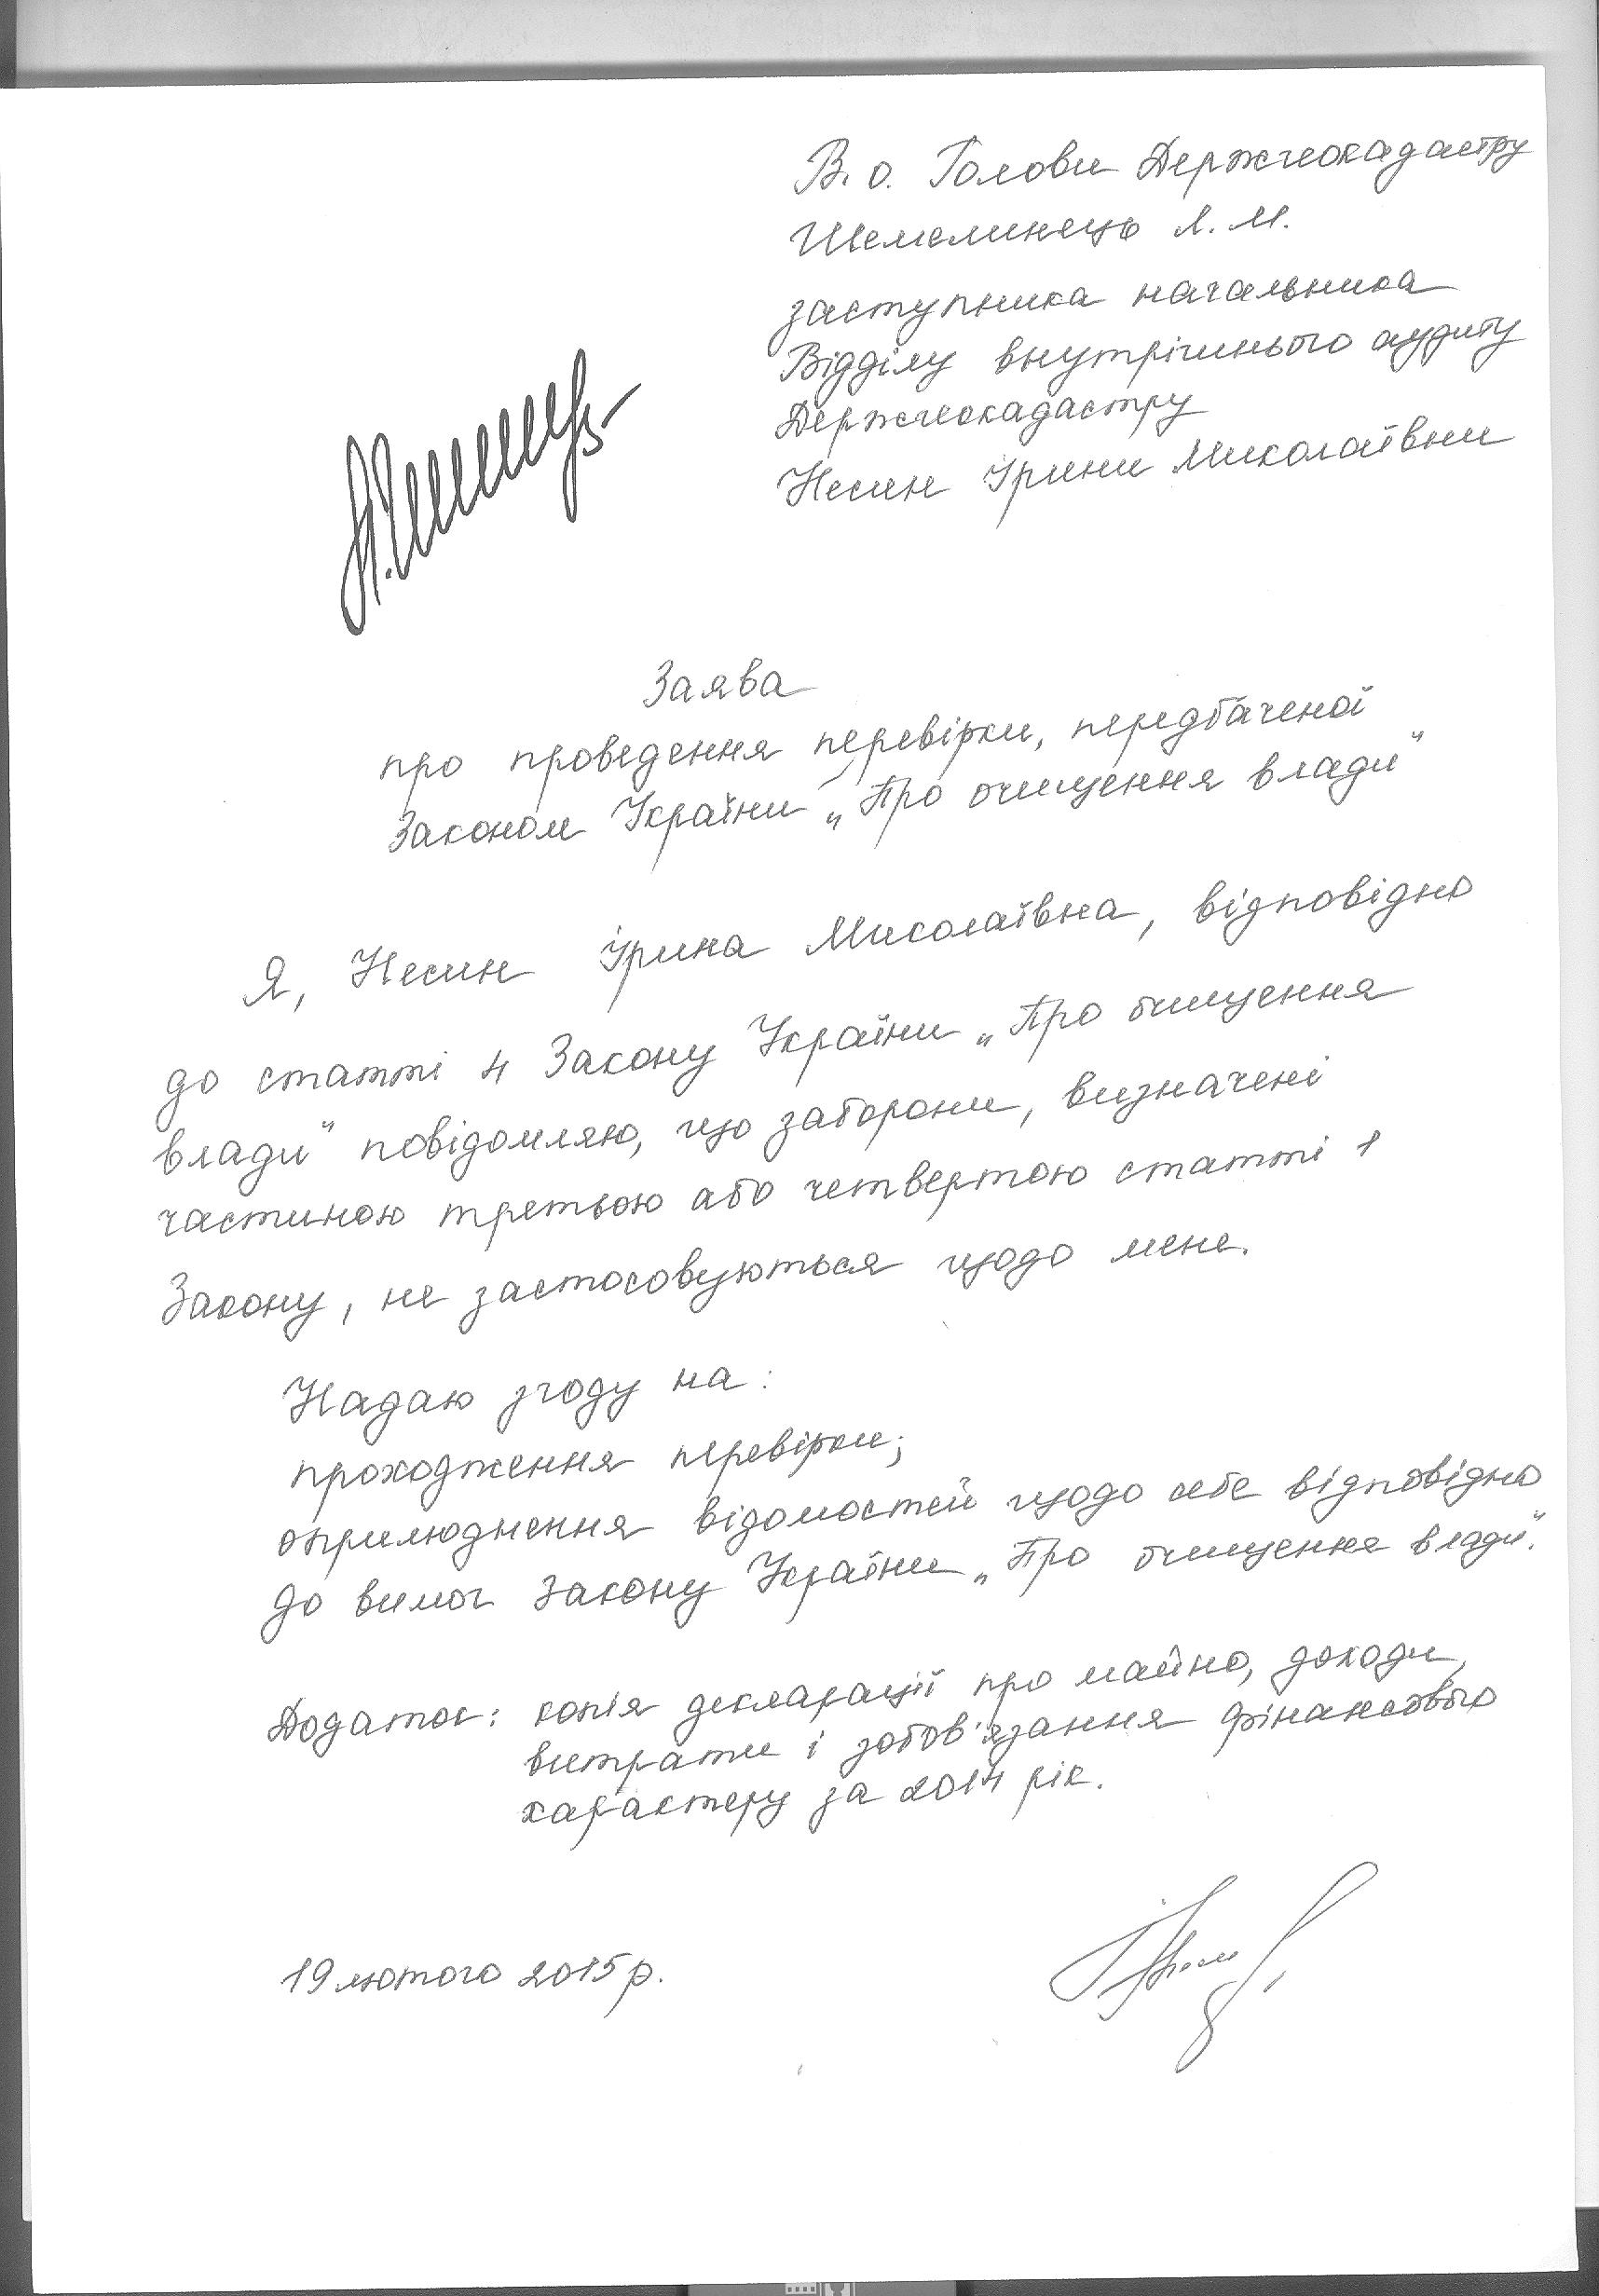 В. о. Голови Держгеокадастру
Шемелинець Л. М.
заступника начальника
Відділу внутрішнього аудиту
Держгеокадастру
Несин Ірини Миколаївни
Заява
про проведення перевірки, передбаченої
Законом України „Про очищення влади"
Я, Несин Ірина Миколаївна, відповідно
до статті 4 Закону України „Про очищення
влади" повідомляю, що заборони, визначені
частиною третьою або четвертою статті 1
Закону, не застосовуються щодо мене.
Надаю згоду на:
проходження перевірки;
оприлюднення відомостей щодо себе відповідно
до вимог Закону України „Про очищення влади".
Додаток: копія декларації про майно, доходи,
витрати і зобов'язання фінансового
характеру за 2014 рік.
19 лютого 2015 р.